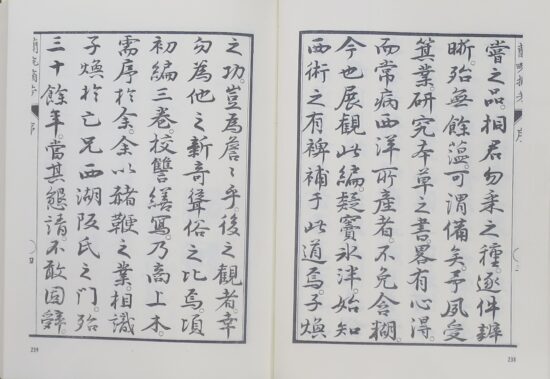 蘭畹摘芳 序
嘗之品。相君勿桒之種。逐件辨
晰。殆無餘蘊。可謂備矣。予夙受
箕業研究本草之書。畧有心得。
而常病西洋所產者。不免含糊。
今也展觀此編。疑竇氷泮。始知
西術之有裨補于此道焉。子煥
238
之功。豈為詹〻乎。後之觀者。幸
勿為他之新奇聳俗之比焉。頃
初編三卷。校讐繕寫。乃高上木。
需序於余。余以赭鞭之業。相識
子煥於亡兄西湖阪氏之門。殆
三十餘年。當其懇請。不敢固辭。
蘭畹摘芳 序 四
239